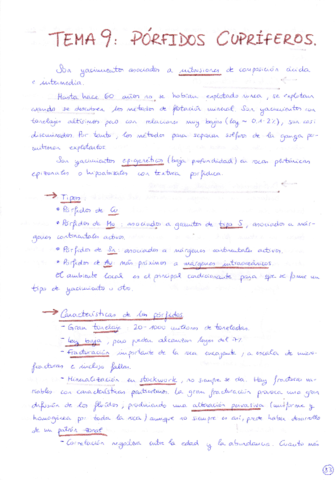 TEMA 9: PÓRFIDOS CUPRÍFEROS.
Son yacimientos asociados a intrusiones de composición ácida
e intermedia.
Hasta hace 60 años no se habían explotado
cuando se los métodos de flotación Son yacimientos con
tonelajes altísimos pero con muy bajas (ley ~ 0.1-2%), son
diseminados. Por tanto, los métodos para separar sulfuros de la ganga
explotarlos
Son yacimientos epigenéticos (baja profundidad) en rocas plutónicas
epizonales o hipoabisales con textura porfídica.
→ Tipos
• Pórfidos de Cu
• Pórfidos de Mo asociados a granitos de tipo S, asociados a már-
genes continentales activos.
• Pórfidos de Sn asociados a márgenes continentales activos.
• Pórfidos de Au más próximos a márgenes
El ambiente local es el principal condicionante para que se forme un
tipo de yacimiento u otro.
→ Características de los pórfidos
- Gran tonelaje 20-1000 millones de toneladas.
- Ley baja, pero pueden alcanzar leyes del 7%
- Fracturación importante de la roca encajante, a escala de micro-
fracturas e incluso fallas.
- Mineralización en stockwork, no siempre se da. Hay fracturas mi-
nerales con características La gran fracturación provoca una gran
difusión de los fluidos, produciendo una alteración pervasiva (uniforme y
homogénea por toda la roca) aunque no siempre es así, puede haber desarrollo
de un
- Correlación negativa entre la edad y la abundancia. Cuanto más